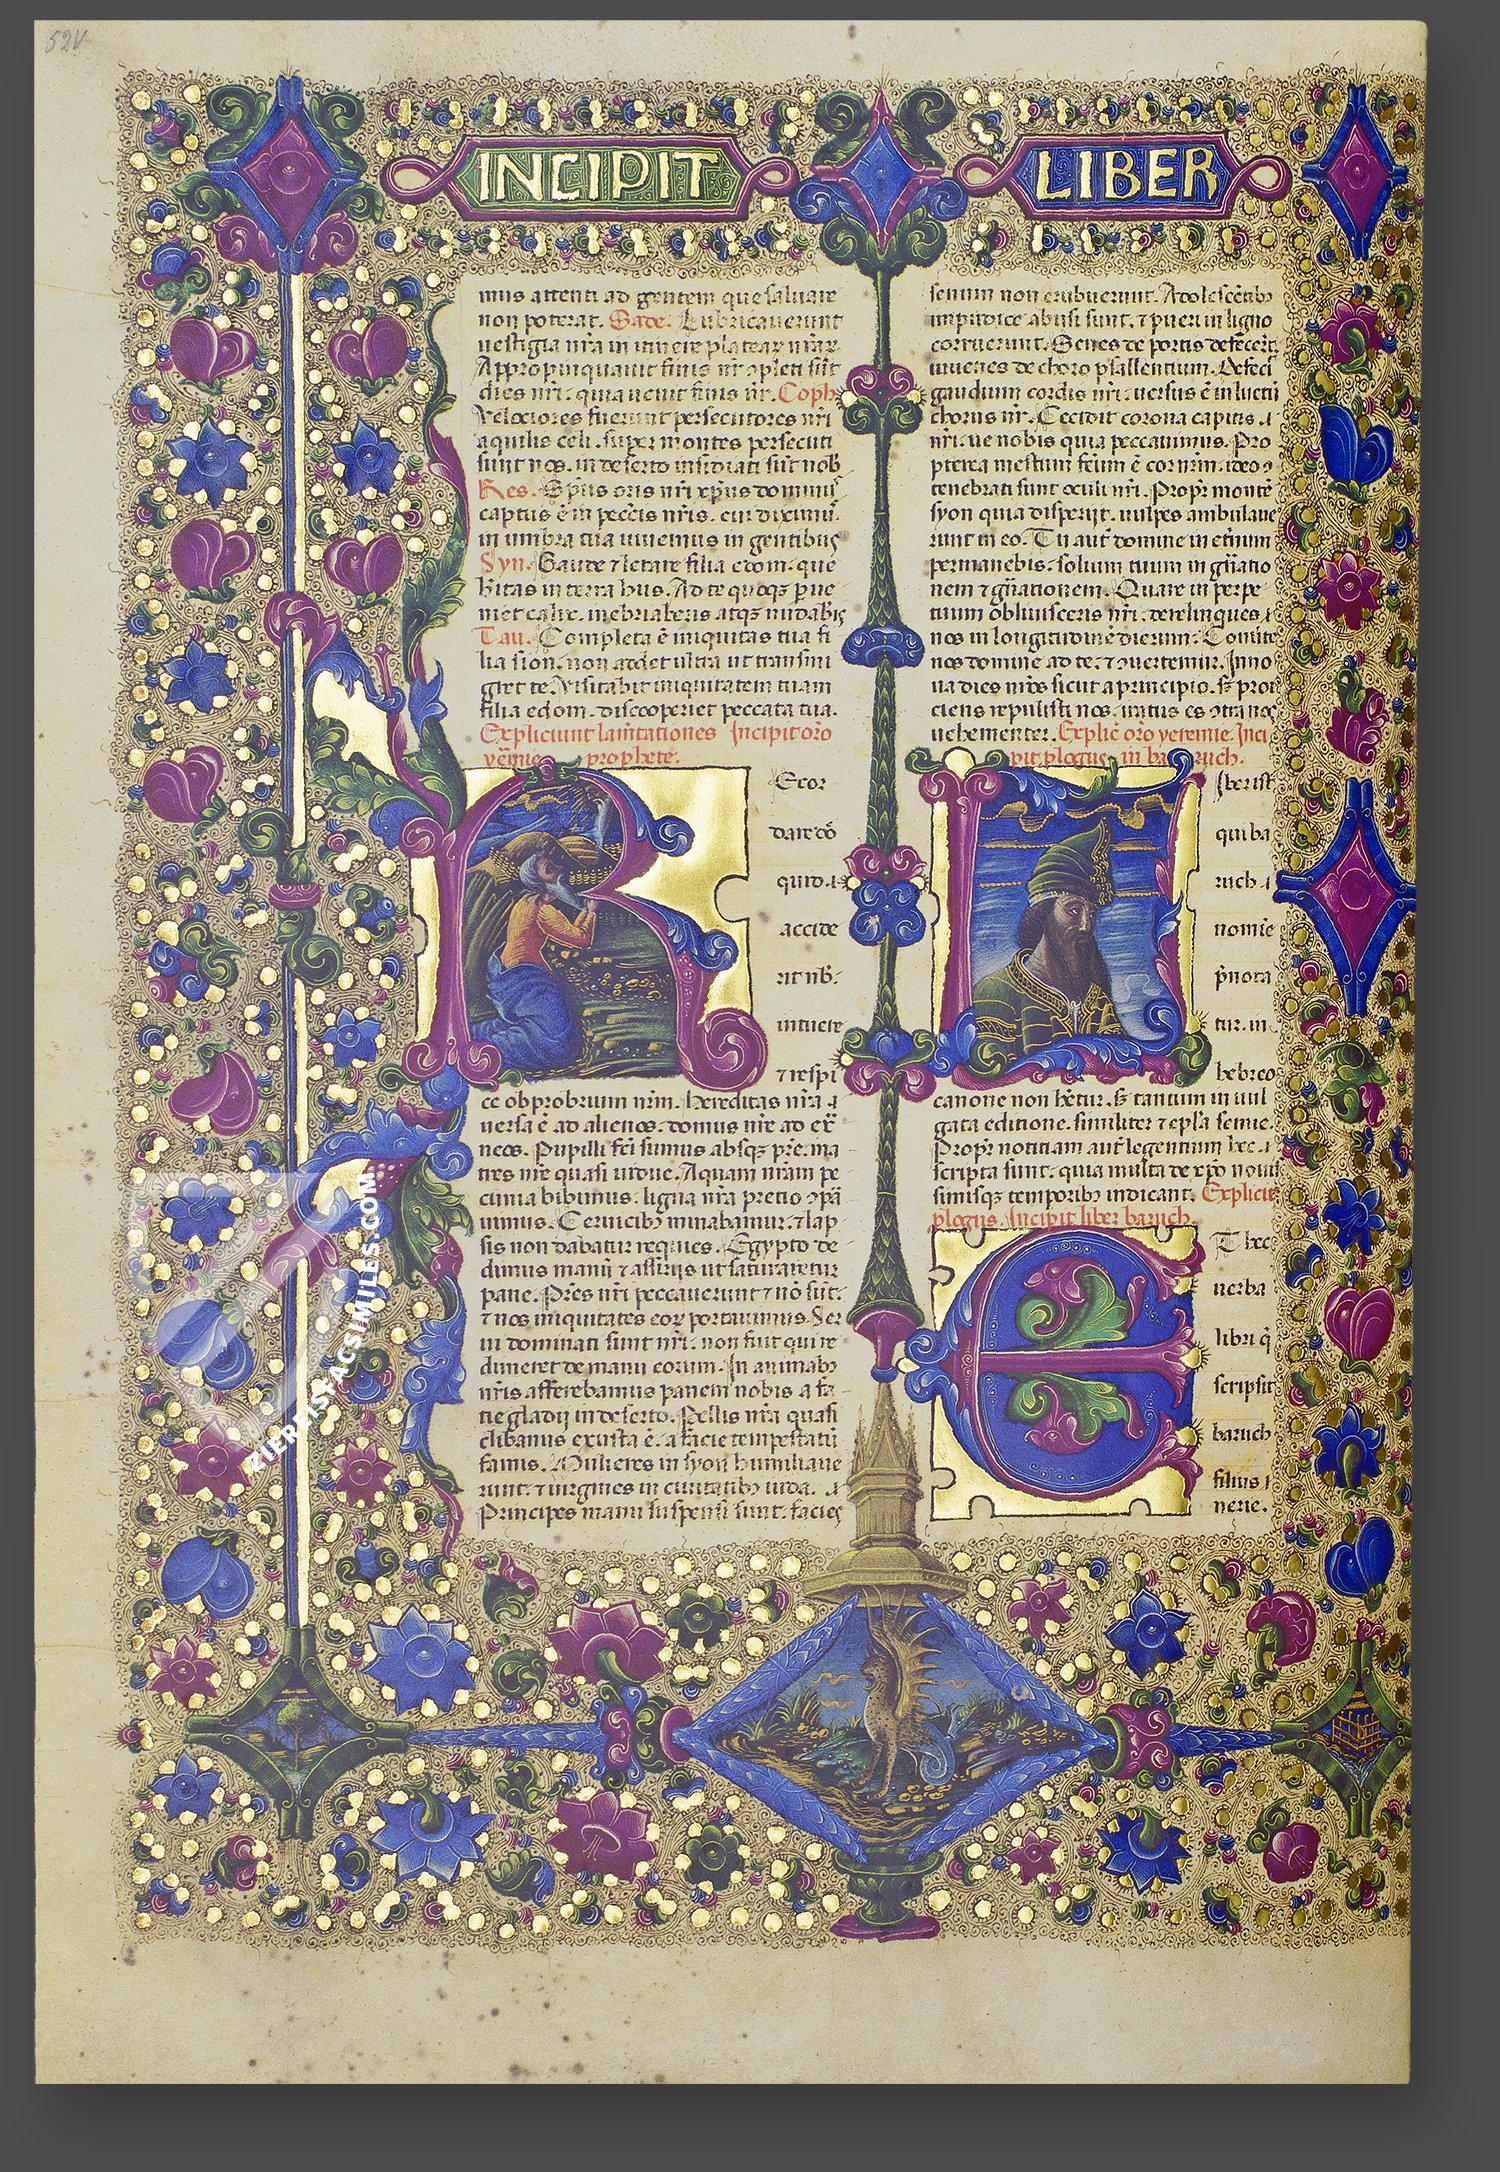 52v
INCIPIT
LIBER
mus attenti ad gentem que saluare
non poterat. Sade. Lubricauerunt
uestigia nr̄a in itinere plateaꝝ nr̄aꝝ
Appropinquauit finis nr̄ ꝯpleti sūt
dies nr̄i. quia uenit finis nr̄. Coph.
Velociores fuerunt persecutores nr̄i
aquilis celi. super montes persecuti
sunt nos. in deserto insidiati sūt nob̄
Res. Sp̄us oris nr̄i xp̄us dominus
captus ē in peccīs nr̄is. cui diximus.
in umbra tua uiuemus in gentibus
Syn. Gaude ⁊ letare filia edom. que
h̄itas in terra hus. Ad te quoqꝫ ꝑue
niet calix. inebriaberis atqꝫ nudabis
Tau. Completa ē iniquitas tua fi
lia sion. non addet ultra ut transmi
gret te. Visitabit iniquitatem tuam
filia edom. discooperiet peccata tua.
Expliciunt lam̄tationes Incipit or̄o
yēmie prophete.
Recor
dare dō
quid. a
accide
rit nb̄.
intuere
⁊ respi
ce obprobrium nr̄m. Hereditas nr̄a. a
uersa ē ad alienos. domus nr̄e ad ex̄
neos. Pupilli fc̄i sumus absqꝫ pr̄e. ma
tres nr̄e quasi uidue. Aquam nr̄am pe
cunia bibimus. ligna nr̄a pretio ꝯpa
uimus. Ceruicibꝫ minabamur. ⁊ lap
sis non dabatur requies. Egypto de
dimus manū ⁊ assiriis ut saturaretur
pane. Pr̄es nr̄i peccauerunt ⁊ nō sūt.
⁊ nos iniquitates eoꝝ portauimus. Ser
ui dominati sunt nr̄i. non fuit qui re
dimeret de manu eorum. In animabꝫ
nr̄is afferebamus panem nobis a fa
cie gladij in deserto. Pellis nr̄a quasi
clibanus exusta ē. a facie tempestatū
famis. Mulieres in syon humiliaue
runt. ⁊ uirgines in ciuitatibꝫ iuda.
Principes manu suspensi sunt. facies
senum non erubuerunt. Adolescētibꝫ
impudice abusi sunt. ⁊ pueri in ligno
corruerunt. Senes de portis defecerūt
iuuenes de choro psallentium. Defecit
gaudium cordis nr̄i. uersus ē in luctū
chorus nr̄. Cecidit corona capitis.
nr̄i. ue nobis quia peccauimus. Pro
pterea mestum fc̄um ē cor nr̄m. ideo ꝯ
tenebrati sunt oculi nr̄i. Propr̄ montē
syon quia disperijt. uulpes ambulaue
runt in eo. Tu aut̄ domine in et̄num
permanebis. solium tuum in gn̄atio
nem ⁊ gn̄ationem. Quare in perpe
tuum obliuisceris nr̄i. derelinques
nos in longitudinē dierum. Conuīte
nos domine ad te. ⁊ ꝯuertemur. Inno
ua dies nr̄os sicut a principio. sꝫ proi
ciens repulisti nos. iratus es ꝯtra nos
uehementer. Explic̄ or̄o yeremie. Inci
pit plogus in baruch.
Liber ist
qui ba
ruch
nomīe
p̄nota
tur. in
hebreo
canone non h̄etur. sꝫ tantum in uul
gata editione. similiter ⁊ ep̄la ieremie.
Propr̄ notitiam aut̄ legentium hec.
scripta sunt. quia multa de xp̄o nouis
simisqꝫ temporibꝫ indicant. Explicit
plogus. Incipit liber baruch.
Et hec
uerba
libri q̄
scripsit
baruch
filius
nerie.
ZIEREISFACSIMILES.COM